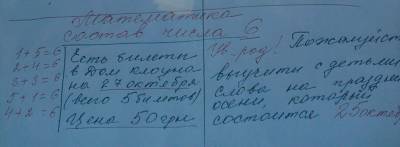 Математика
состав числа 6
1+5=6
2+4=6
3+3=6
5+1=6
4+2=6
Есть билеты
в Дом клоуна
на 27 октября
(всего 5 билетов)
Цена 50 грн
Ув. род! Пожалуйст
выучити с детьми
слова на праздни
осени, который
состоится 25 октяб